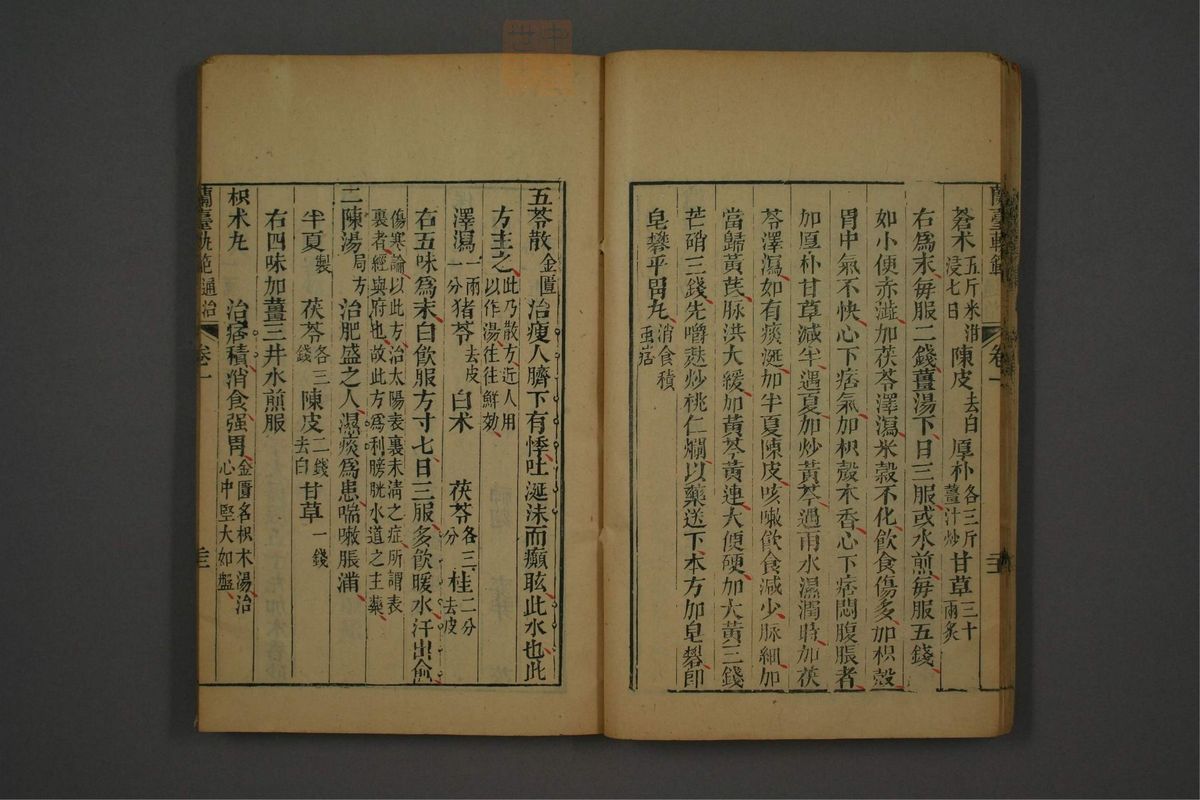 蘭臺軌範 卷一
蒼朮五斤米泔浸七日 陳皮去白 厚朴各三斤薑汁炒 甘草三十兩炙
右爲末每服二錢薑湯下日三服或水煎每服五錢
如小便赤澁加茯苓澤瀉米穀不化飲食傷多加枳殼
胃中氣不快心下痞氣加枳殼木香心下痞悶腹脹者
加厚朴甘草減半遇夏加炒黃芩遇雨水濕潤時加茯
苓澤瀉如有痰涎加半夏陳皮咳嗽飲食減少脉細加
當歸黃芪脉洪大緩加黃芩黃連大便硬加大黃三錢
芒硝三錢先嚼麩炒桃仁爛以藥送下本方加皂礬卽
皂礬平胃丸消食積虫痞
五苓散金匱 治瘦人臍下有悸吐涎沫而癲眩此水也此
方主之此乃散方近人用以作湯往往鮮効
澤瀉一兩一分 猪苓去皮 白朮 茯苓各三分 桂二分去皮
右五味爲末白飲服方寸七日三服多飲暖水汗出愈
傷寒論以此方治太陽表裏未清之症所謂表
裏者經與府也故此方爲利膀胱水道之主藥
二陳湯局方 治肥盛之人濕痰爲患喘嗽脹滿
半夏製 茯苓各三錢 陳皮二錢去白 甘草一錢
右四味加薑三片水煎服
枳朮丸 治痞積消食强胃金匱名枳朮湯治心中堅大如盤
蘭臺軌範 通治 卷一